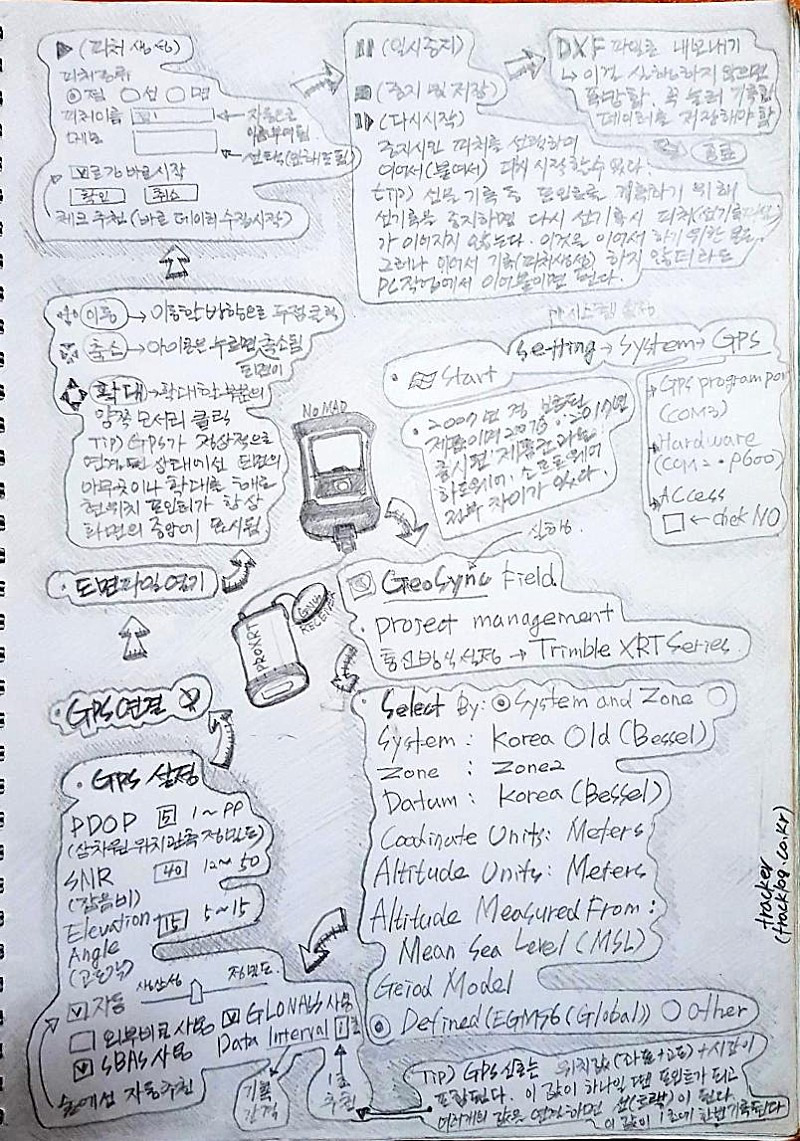 ▶ (피처 생성)
피처종류
◉ 점 ○ 선 ○ 면
피처이름
← 자동으로
이름부여됨
메모
← 선택(안해도됨)
☑ 로깅 바로시작
확인 취소
체크 추천 (바로 데이터수집시작)
(일시중지)
(중지 및 저장)
(다시시작)
중지시킨 피처를 선택하여
이어서(붙여서) 다시 시작할수있다.
tip) 선을 기록 중 포인트를 기록하기 위해
선기록을 중지하면 다시 선기록시 피처(선기록
가 이어지지 않는다. 이것을 이어서 하기 위한 것임.
그러나 이어서 기록(피처생성) 하지 않더라도
PC작업에서 이어붙이면 된다.
DXF 파일로 내보내기
↳ 이걸 실행하지 않으면
꼭 눌러 기록된
데이터를 저장해야 함
종료
이동 → 이동할 방향으로 두점 클릭
축소 → 아이콘을 누르면 축소됨
도면이
확대 → 확대할 부분의
양쪽 모서리 클릭
TIP) GPS가 정상적으로
연결된 상태에선 도면의
아무곳이나 확대를 해도
현위치 포인터가 항상
화면의 중앙에 표시됨
· 도면파일열기
· GPS연결
NOMAD
PROXRT
GNSS
RECEIVER
시스템 설정
· Start
Setting → System → GPS
→ GPS program port
(COM3)
→ Hardware
(COM2 · 9600)
→ Access
□ ← chek NO
· 2007년경 보급된
제품이며 2007년 .. 2017년
출시된 제품간과는
하드웨어, 소프트웨어
전부 차이가 있다.
실행
GeoSync Field
· project management
통신방식설정 → Trimble XRT Series
· Select By: ◉ System and Zone ○
System : Korea Old (Bessel)
Zone : Zone2
Datum : Korea (Bessel)
Coodinate Units: Meters
Altitude Units: Meters
Altitude Measured From:
Mean Sea Level (MSL)
Geiod Model
◉ Defined(EGM96(Global)) ○ Other
· GPS 설정
PDOP 5 1~99
(삼차원 위치관측 정밀도)
SNR 40 12~50
(잡음비)
Elevation 15 5~15
Angle
(고도각)
생산성 정밀도
☑ 자동
□ 외부비콘 사용
☑ SBAS 사용
☑ GLONASS 사용
Data Interval 1초
숲에선 자동추천
기록
간격
1초
추천
TIP) GPS신호는 위치값(좌표+고도)+시간이
포함된다. 이 값이 하나일 땐 포인트가 되고
여러개의 값을 연결하면 선(트랙)이 된다.
이 값이 1초에 한번 기록된다
tracker
(tracklog.co.kr)